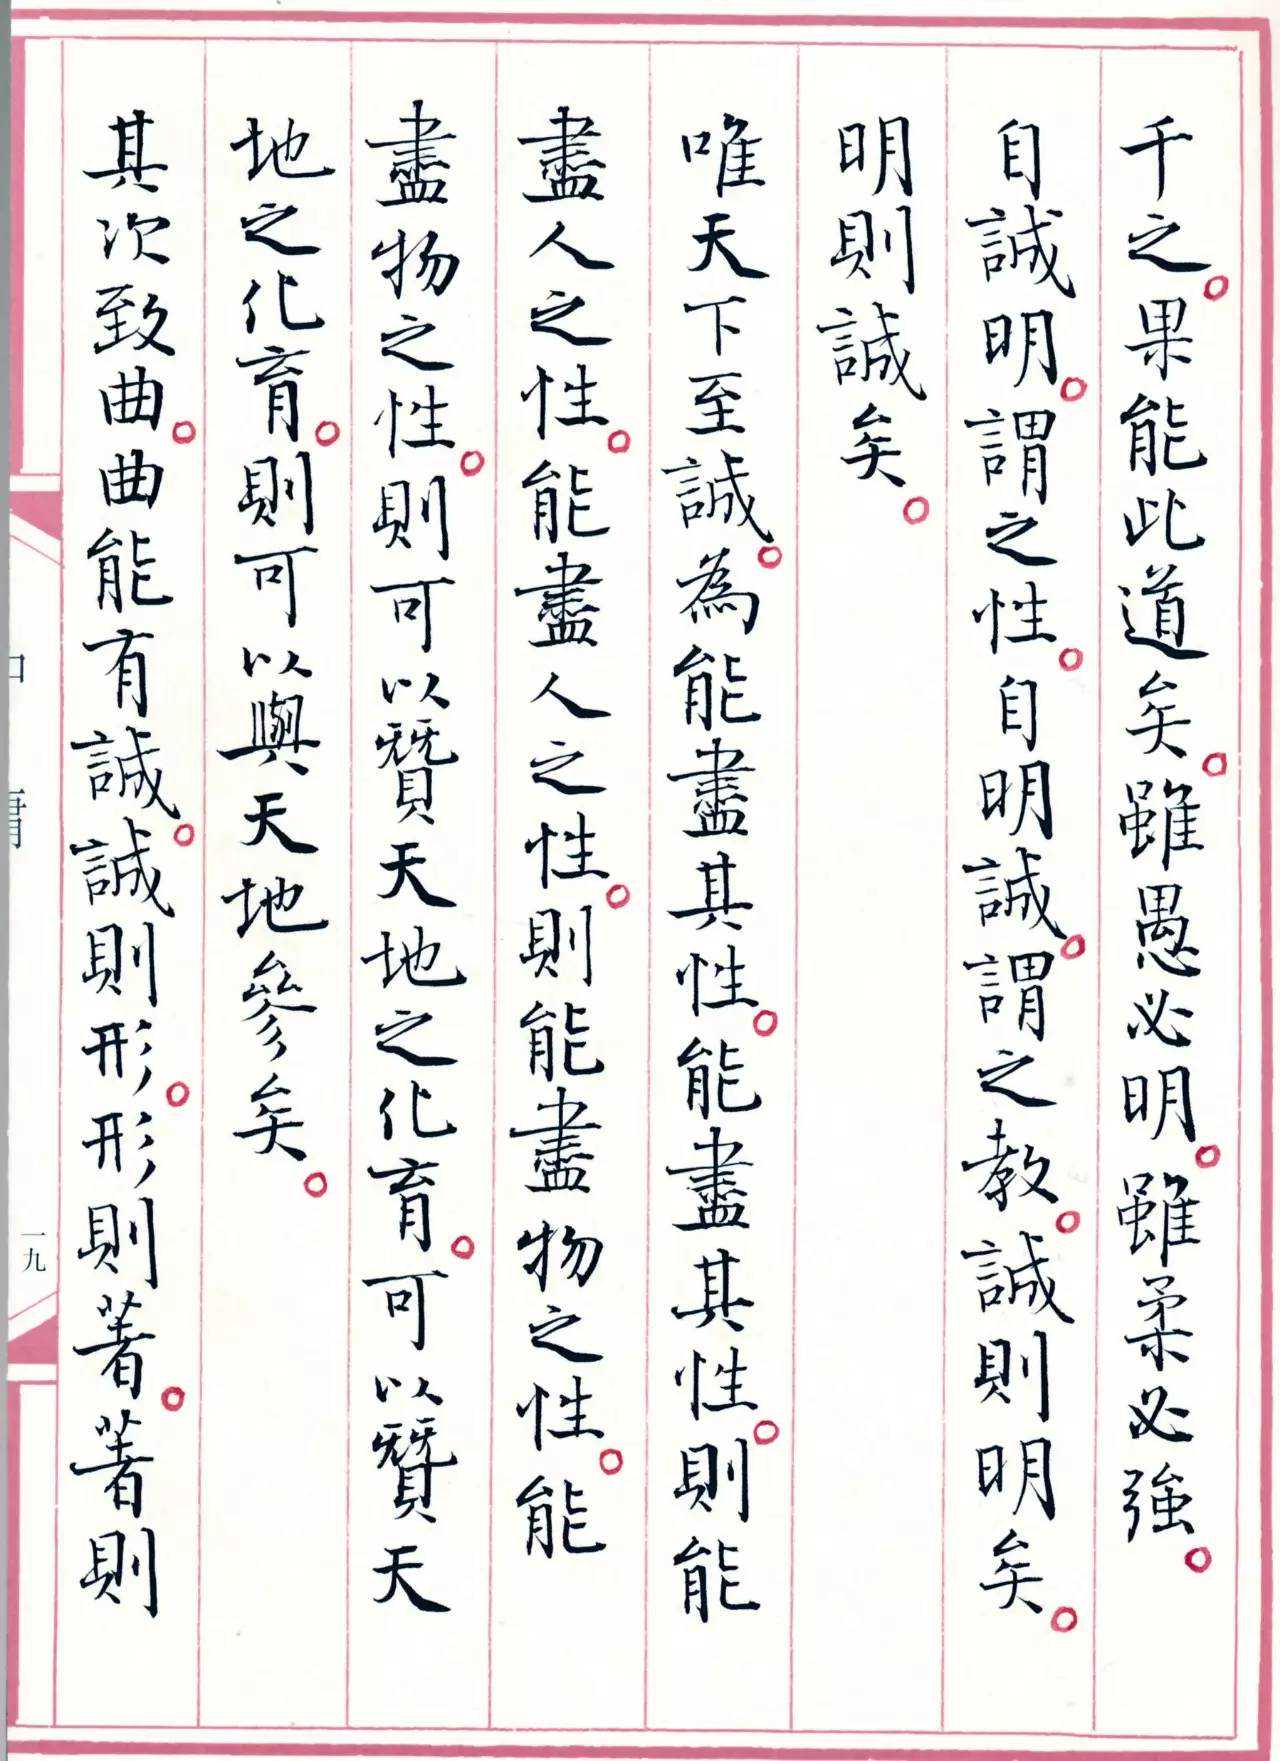 千之。果能此道矣。雖愚必明。雖柔必強。
自誠明。謂之性。自明誠。謂之教。誠則明矣。
明則誠矣。
唯天下至誠。為能盡其性。能盡其性。則能
盡人之性。能盡人之性。則能盡物之性。能
盡物之性。則可以贊天地之化育。可以贊天
地之化育。則可以與天地參矣。
其次致曲。曲能有誠。誠則形。形則著。著則
中庸
一九